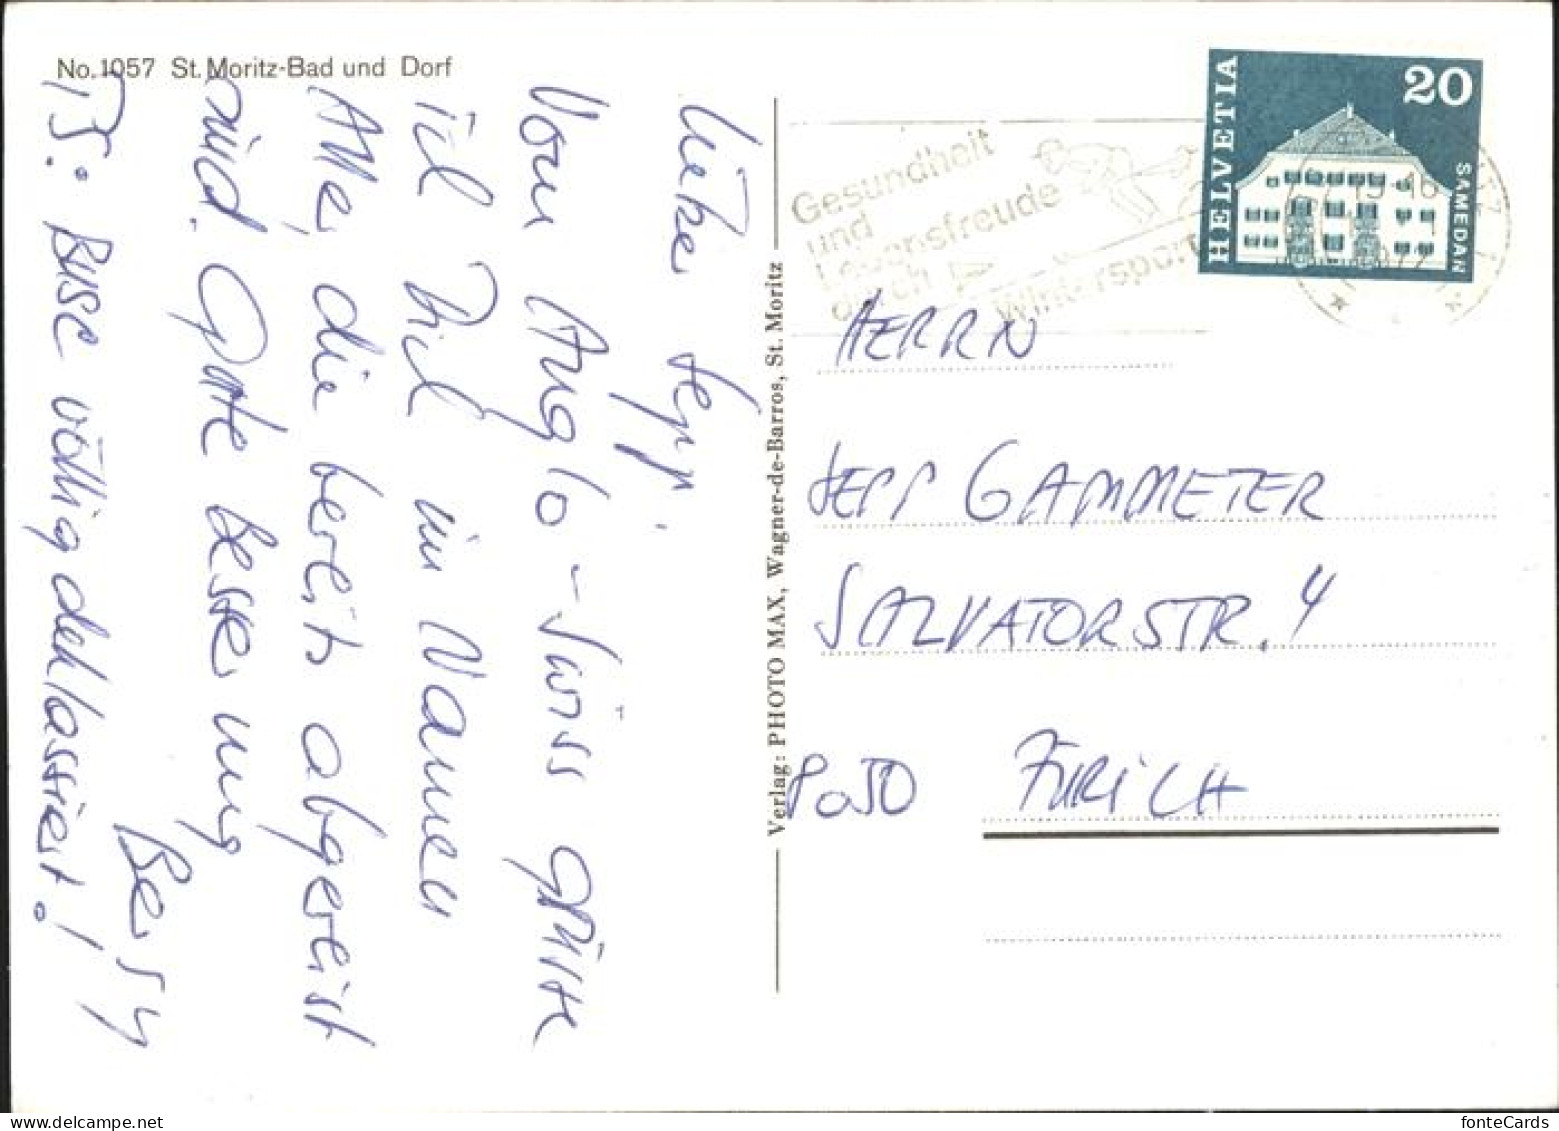 No. 1057 St. Moritz-Bad und Dorf
Lieber Sepp,
Vom Anglo-Swiss grüsse
ich Dich im Namen
Aller, die bereits abgereist
sind. Gute Besserung
Betsy
PS: BUSE völlig dehlassiert!
Verlag: PHOTO MAX, Wagner-de-Barros, St. Moritz
Gesundheit
und
Lebensfreude
durch
Wintersport
HELVETIA
20
SAMEDAN
HERRN
SEPP GAMMETER
SALVATORSTR. 4
8050 ZÜRICH
fonteCards